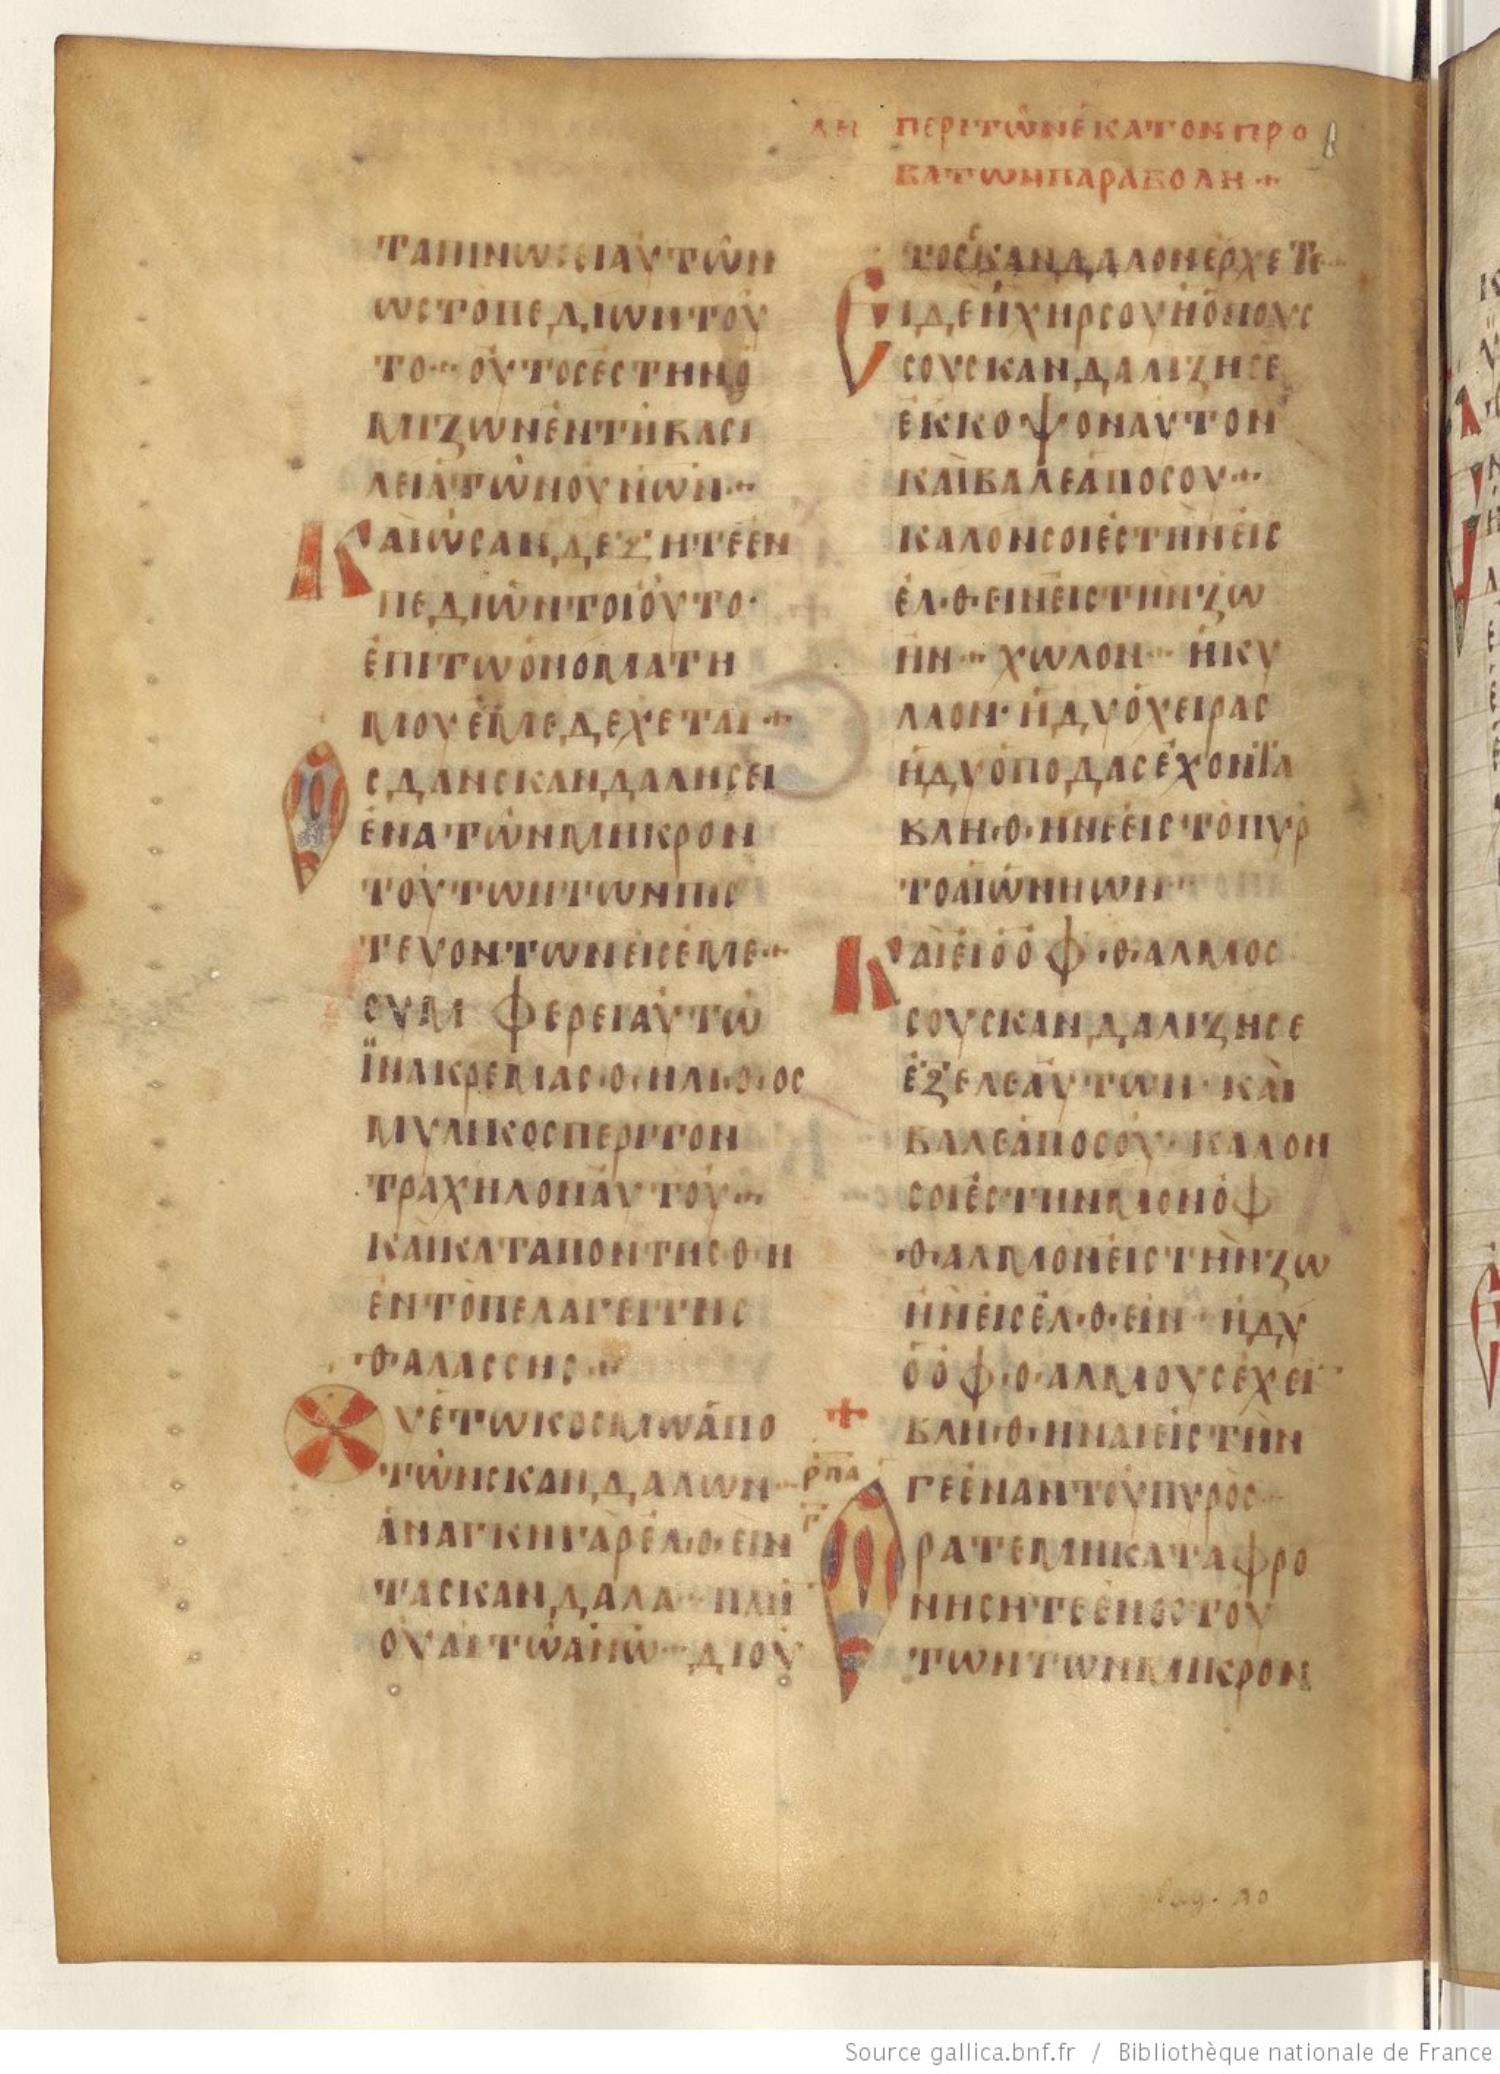 ΛΗ ΠΕΡΙΤΩΝΕΚΑΤΟΝΠΡΟ
ΒΑΤΩΝΠΑΡΑΒΟΛΗ
ΤΑΠΙΝΩΣΕΙΑΥΤΩΝ
ΩΣΤΟΠΕΔΙΩΝΤΟΥ
ΤΟ ΟΥΤΟΣΕΣΤΗΝΟ
ΜΙΖΩΝΕΝΤΗΒΑΣΙ
ΛΕΙΑΤΩΝΟΥΝΩΝ
ΚΑΙΩΣΑΝΔΕΞΗΤΕΕΝ
ΠΕΔΙΩΝΤΟΙΟΥΤΟ·
ΕΠΙΤΩΟΝΟΜΑΤΗ
ΜΟΥΕΜΕΔΕΧΕΤΑΙ
ΟΣΔΑΝΣΚΑΝΔΑΛΗΣΕΙ
ΕΝΑΤΩΝΜΗΚΡΟΝ
ΤΟΥΤΩΝΤΩΝΠΙΣ
ΤΕΥΟΝΤΩΝΕΙΣΕΜΕ
ΣΥΜΦΕΡΕΙΑΥΤΩ
ΪΝΑΚΡΕΜΑΣΘΗΛΙΘΟΣ
ΜΥΛΗΚΟΣΠΕΡΙΤΟΝ
ΤΡΑΧΗΛΟΝΑΥΤΟΥ
ΚΑΙΚΑΤΑΠΟΝΤΗΣΘΗ
ΕΝΤΟΠΕΛΑΓΕΙΤΗΣ
ΘΑΛΑΣΣΗΣ
ΟΥΕΤΩΚΟΣΜΩΑΠΟ
ΤΩΝΣΚΑΝΔΑΛΩΝ
ΑΝΑΓΚΗΓΑΡΕΛΘΕΙΝ
ΤΑΣΚΑΝΔΑΛΑ ΠΛΗ
ΟΥΑΙΤΩΑΝΩ ΔΙΟΥ
ΤΟΣΚΑΝΔΑΛΟΝΕΡΧΕΤΕ
ΕΙΔΕΗΧΗΡΣΟΥΗΟΠΟΥΣ
ΣΟΥΣΚΑΝΔΑΛΙΖΗΣΕ
ΕΚΚΟΨΟΝΑΥΤΟΝ
ΚΑΙΒΑΛΕΑΠΟΣΟΥ
ΚΑΛΟΝΣΟΙΕΣΤΗΝΕΙΣ
ΕΛΘΕΙΝΕΙΣΤΗΝΖΩ
ΗΝ ΧΩΛΟΝ ΗΚΥ
ΛΛΟΝ· ΗΔΥΟΧΕΙΡΑΣ
ΗΔΥΟΠΟΔΑΣΕΧΟΝΪΑ
ΒΛΗΘΗΝΕΕΙΣΤΟΠΥΡ
ΤΟΑΙΩΝΗΩΝ
ΚΑΙΕΙΟΟΦΘΑΛΜΟΣ
ΣΟΥΣΚΑΝΔΑΛΙΖΗΣΕ
ΕΞΕΛΕΑΥΤΩΝ· ΚΑΙ
ΒΑΛΕΑΠΟΣΟΥ· ΚΑΛΟΝ
ΣΟΙΕΣΤΗΝΜΟΝΟΦ
ΘΑΛΜΟΝΕΙΣΤΗΝΖΩ
ΗΝΕΙΣΕΛΘΕΙΝ ΗΔΥ
ΟΟΦΘΑΛΜΟΥΣΕΧΕΙ
ΒΛΗΘΗΝΑΙΕΙΣΤΗΝ
ΓΕΕΝΑΝΤΟΥΠΥΡΟΣ
ΡΠΑ
Γ
ΟΡΑΤΕΜΗΚΑΤΑΦΡΟ
ΝΗΣΗΤΕΕΝΟΣΤΟΥ
ΤΩΝΤΩΝΜΙΚΡΟΝ
Source gallica.bnf.fr / Bibliothèque nationale de France